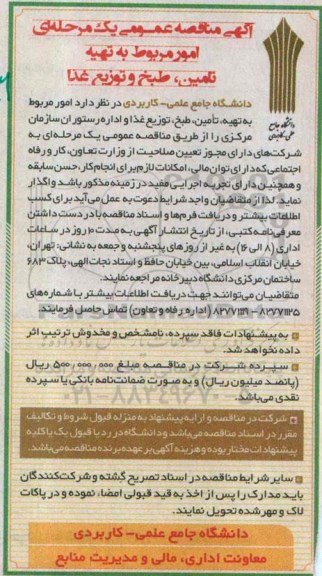 آگهی مناقصه عمومی یک مرحله‌ای
امور مربوط به تهیه
تامین، طبخ و توزیع غذا
دانشگاه جامع
علمی کاربردی
دانشگاه جامع علمی- کاربردی در نظر دارد امور مربوط
به تهیه، تأمین، طبخ، توزیع غذا و اداره رستوران سازمان
مرکزی را از طریق مناقصه عمومی یک مرحله‌ای به
شرکت‌های دارای مجوز تعیین صلاحیت از وزارت تعاون، کار و رفاه
اجتماعی که دارای توان مالی، امکانات لازم برای انجام کار، حسن سابقه
و همچنین دارای تجربه اجرایی مفید در زمینه مذکور باشد واگذار
نماید. لذا از متقاضیان واجد شرایط دعوت به عمل می‌آید برای کسب
اطلاعات بیشتر و دریافت فرم‌ها و اسناد مناقصه با در دست داشتن
معرفی‌نامه کتبی، از تاریخ انتشار آگهی به مدت ۱۰ روز در ساعات
اداری (۸ الی ۱۶) به غیر از روزهای پنجشنبه و جمعه به نشانی: تهران،
خیابان انقلاب اسلامی، بین خیابان حافظ و استاد نجات‌الهی، پلاک ۶۸۳
ساختمان مرکزی دانشگاه دبیرخانه مراجعه نمایند.
متقاضیان می‌توانند جهت دریافت اطلاعات بیشتر با شماره‌های
(اداره رفاه و تعاون) تماس حاصل فرمایند.
به پیشنهادات فاقد سپرده، نامشخص و مخدوش ترتیب اثر
داده نخواهد شد.
سپرده شرکت در مناقصه مبلغ ۵۰۰,۰۰۰,۰۰۰ ریال
(پانصد میلیون ریال) و به صورت ضمانت‌نامه بانکی یا سپرده
نقدی می‌باشد.
شرکت در مناقصه و ارایه پیشنهاد به منزله قبول شروط و تکالیف
مقرر در اسناد مناقصه می‌باشد و دانشگاه در رد یا قبول یک یا کلیه
پیشنهادات مختار بوده و هزینه آگهی بر عهده برنده مناقصه می‌باشد.
سایر شرایط مناقصه در اسناد تصریح گشته و شرکت‌کنندگان
باید مدارک را پس از اخذ به قید قبولی امضا، نموده و در پاکات
لاک و مهر شده تحویل نمایند.
دانشگاه جامع علمی- کاربردی
معاونت اداری، مالی و مدیریت منابع